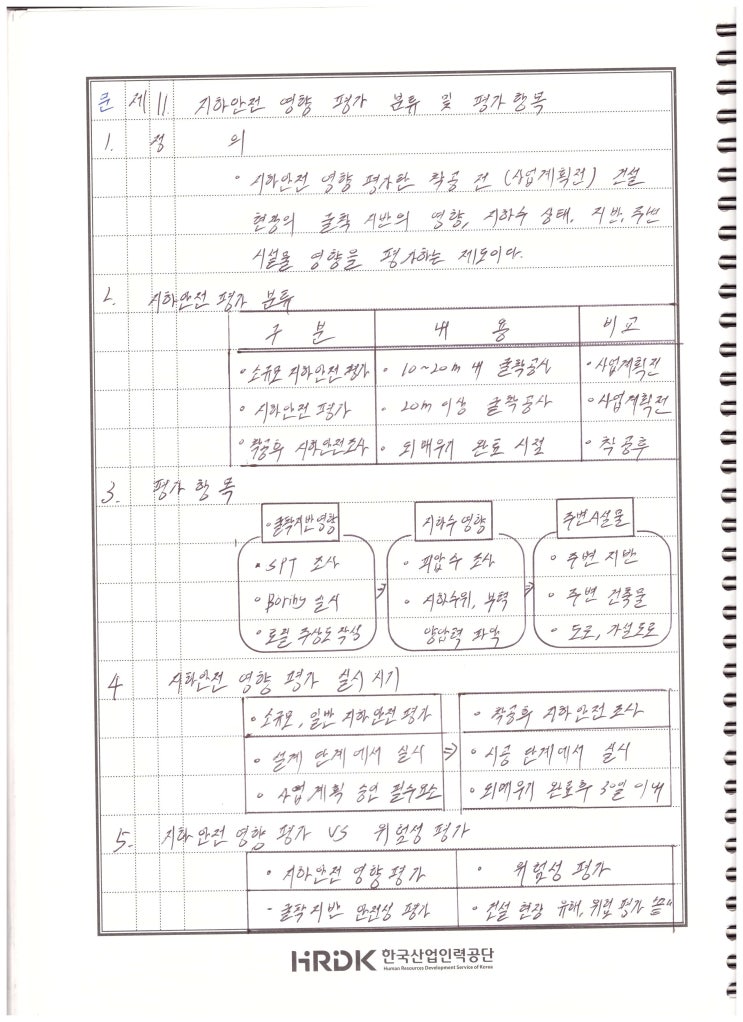 문 제 11. 지하안전 영향 평가 분류 및 평가항목
1. 정 의
• 지하안전 영향 평가란 착공 전 (사업계획전) 건설
현장의 굴착 지반의 영향, 지하수 상태, 지반, 주변
시설물 영향을 평가하는 제도이다.
2. 지하안전 평가 분류
구 분 내 용 비고
• 소규모 지하안전 평가 • 10~20m 내 굴착공사 • 사업계획전
• 지하안전 평가 • 20m 이상 굴착공사 • 사업계획전
• 착공후 지하안전조사 • 되메우기 완료 시점 • 착공후
3. 평가 항목
• 굴착지반영향 지하수 영향 주변시설물
• SPT 조사 • 피압수 조사 • 주변 지반
• Boring 실시 ⇒ • 지하수위, 부력 ⇒ • 주변 건축물
• 토질 주상도 작성 양압력 파악 • 도로, 가설도로
4 지하안전 영향 평가 실시 시기
• 소규모, 일반 지하안전 평가 • 착공후 지하안전 조사
• 설계 단계에서 실시 ⇒ • 시공 단계에서 실시
• 사업계획 승인 필수요소 • 되메우기 완료후 30일 이내
5. 지하안전 영향 평가 VS 위험성 평가
• 지하안전 영향 평가 • 위험성 평가
- 굴착지반 안전성 평가 • 건설 현장 유해, 위험 평가 "끝"
HRDK 한국산업인력공단
Human Resources Development Service of Korea